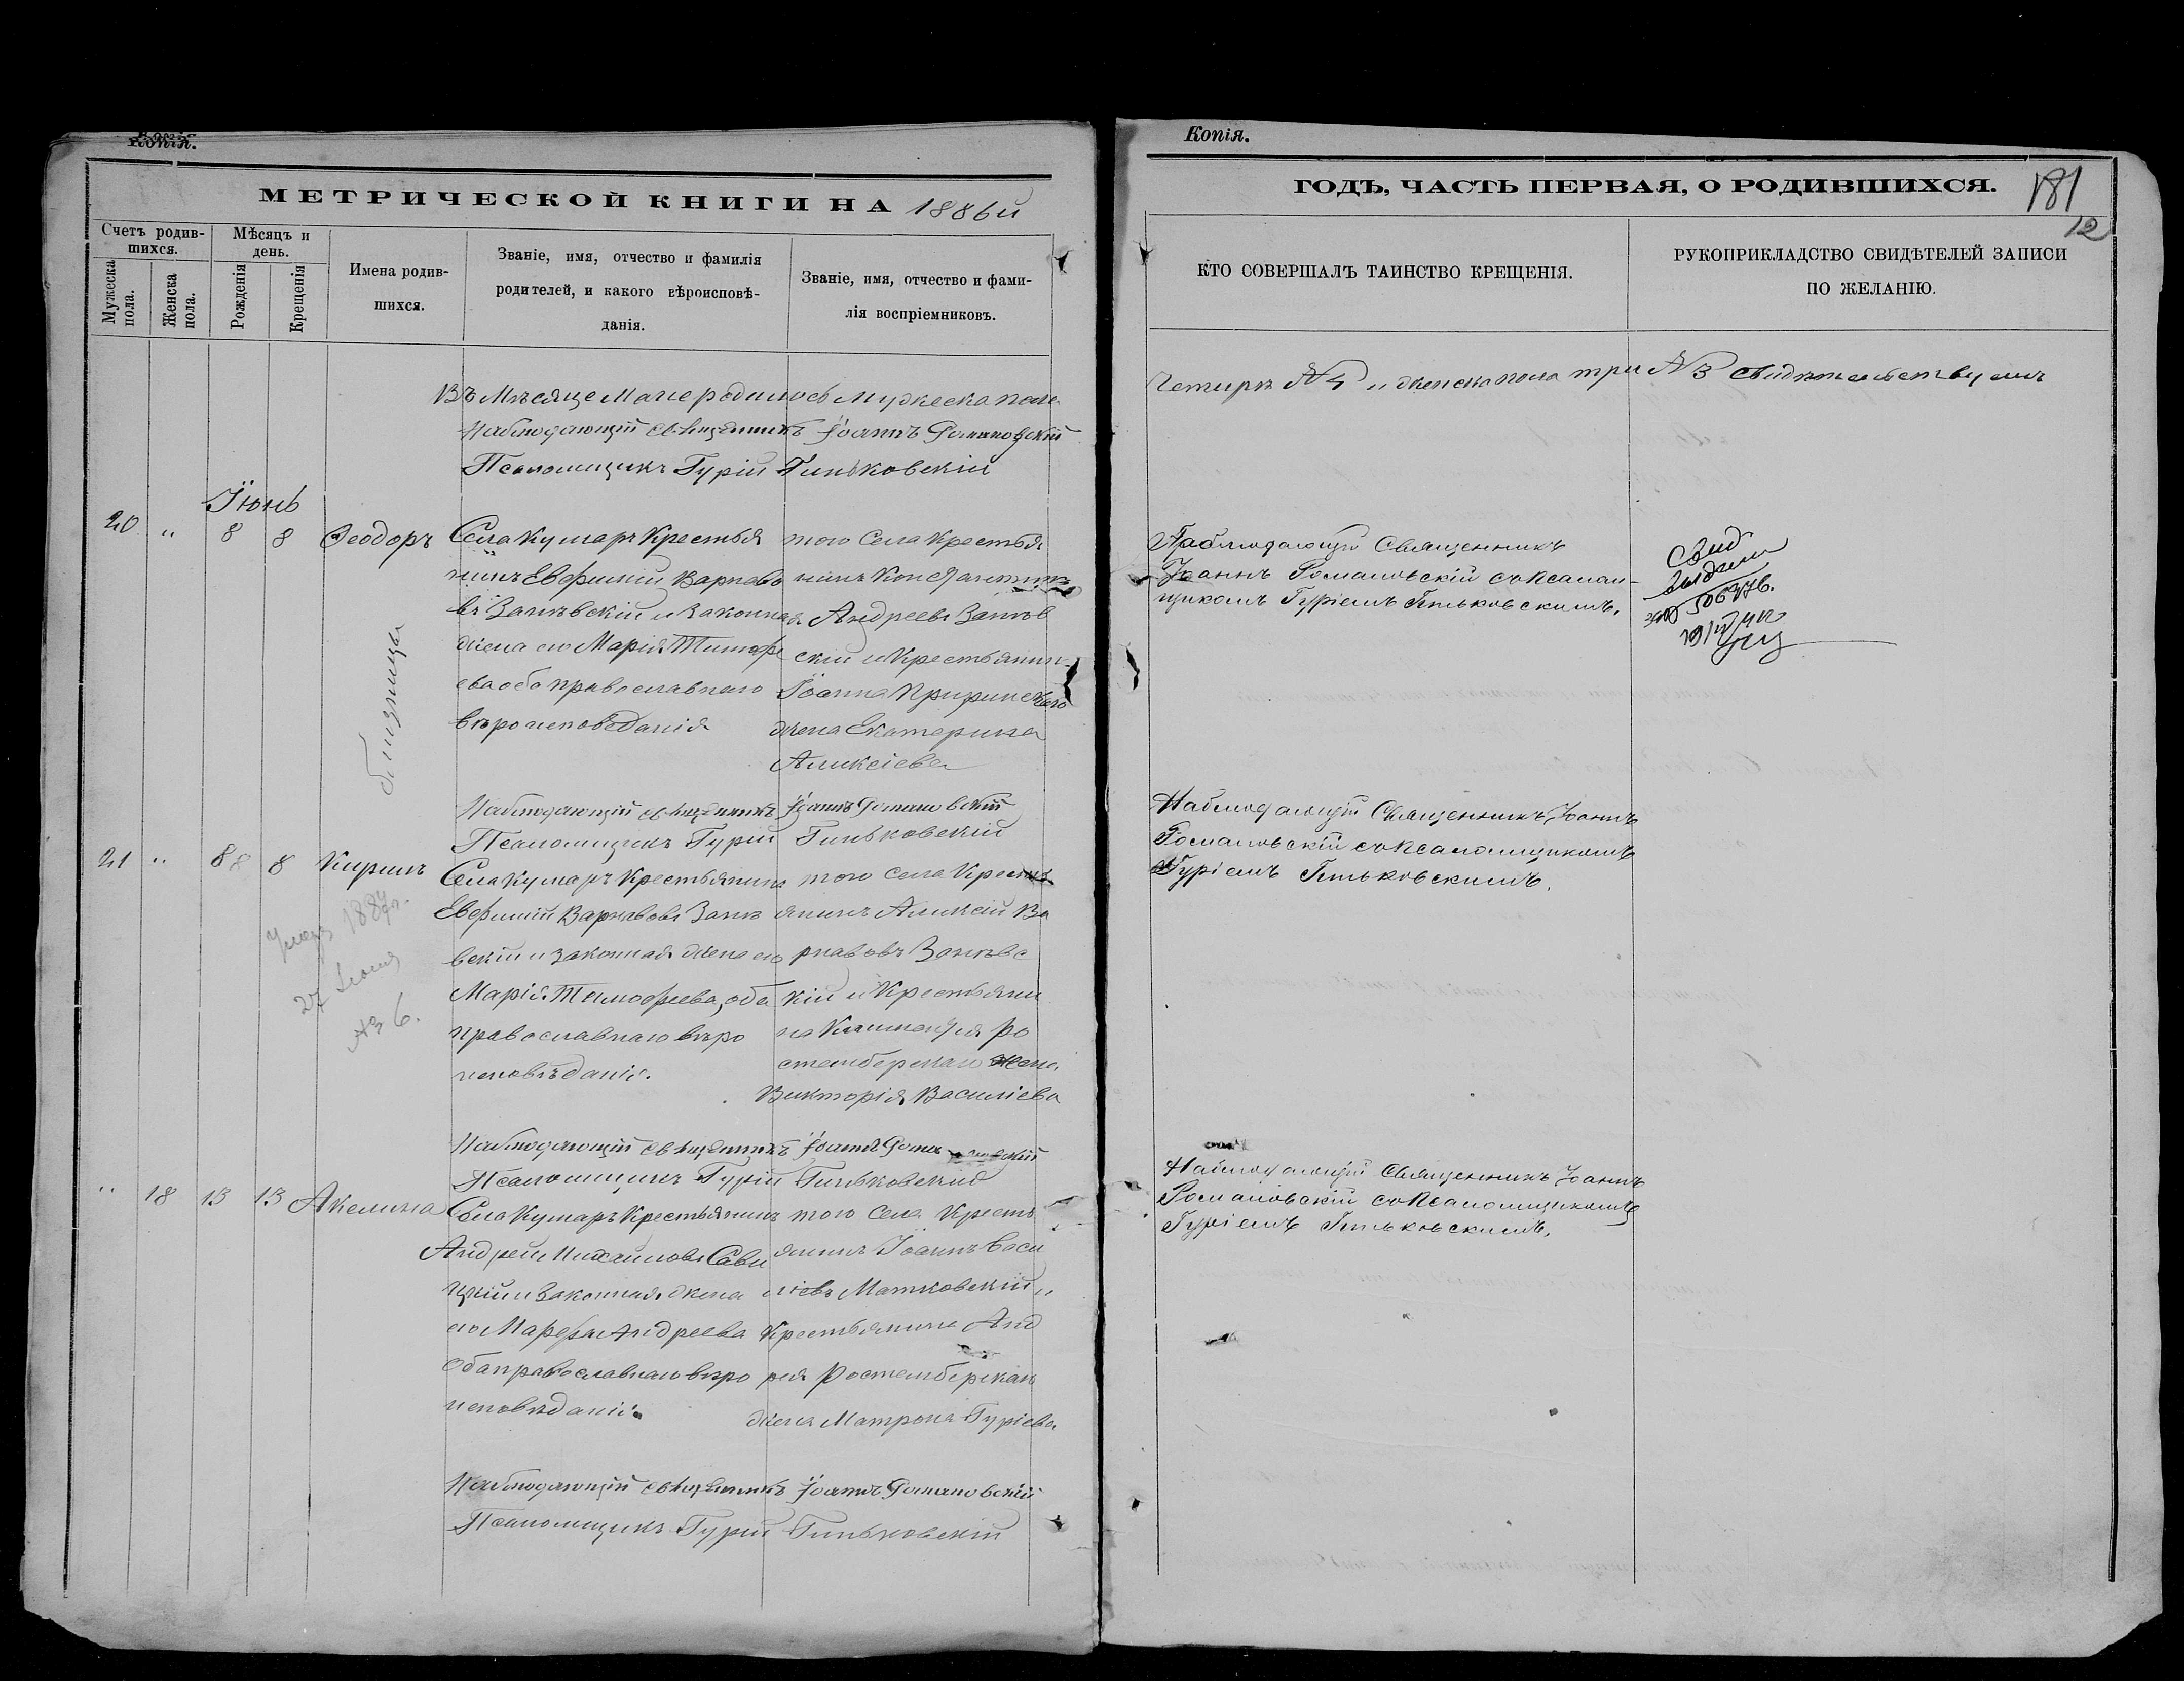 Копія.
МЕТРИЧЕСКОЙ КНИГИ НА 1886й
Счетъ родив-
шихся.
Мужеска
пола.
Женска
пола.
Мѣсяцъ и
день.
Рожденія
Крещенія
Имена родив-
шихся.
Званіе, имя, отчество и фамилія
родителей, и какого вѣроисповѣ-
данія.
Званіе, имя, отчество и фами-
лія воспріемниковъ.
Въ Мѣсяце Маие родилось мужеска пола
Наблюдающій священникъ Іоаннъ Романовскій
Псаломщикъ Гурій Гиньковскій
Іюнь
20 " 8 8 Ѳеодоръ
Села Кумаръ Крестья
нинъ Евфимій Варнаво
въ Занѣвскій и законная
жена его Марія Тимофе
ева оба православнаго
вѣроисповѣданія
того Села Крестья
нинъ Константинъ
Андреевъ Занѣв
скій и Крестьянин
Іоанна
жена Екатерина
Аликсіева
близнецы
Наблюдающій священникъ Іоаннъ Романовскій
Псаломщикъ Гурій Гиньковскій
21 " 8 8 Кирилъ
Села Кумаръ Крестьянинъ
Евфимій Варнавовъ Занѣ
вскій и законная жена его
Марія Тимофеева, оба
православнаго вѣро
исповѣданія.
того Села Кресть
янинъ Аликсій Ва
рнавовъ Занѣвс
кій и Крестьяни
на Климентія Ро
стемберскаго жена
Викторія Василіева
1887г.
27
№ 6.
Наблюдающій священникъ Іоаннъ Романовскій
Псаломщикъ Гурій Гиньковскій
" 18 13 13 Акелина
Села Кумаръ Крестьянинъ
Андрей Михаиловъ Сави
цкій и законная жена
его Марфа Андреева
оба православнаго вѣро
исповѣданія
того Села Кресть
янинъ Іоаннъ Васи
ліевъ Матковскій и
Крестьянина Анд
рея Ростемберскаго
жена Матрона Гуріева
Наблюдающій священникъ Іоаннъ Романовскій
Псаломщикъ Гурій Гиньковскій
Копія.
ГОДЪ, ЧАСТЬ ПЕРВАЯ, О РОДИВШИХСЯ.
181
12
КТО СОВЕРШАЛЪ ТАИНСТВО КРЕЩЕНІЯ.
РУКОПРИКЛАДСТВО СВИДѢТЕЛЕЙ ЗАПИСИ
ПО ЖЕЛАНІЮ.
Четыри № 4 и женска пола три № 3 свидѣтельствуемъ
Наблюдающій Священникъ
Іоаннъ Романовскій съ псалом-
щикомъ Гуріемъ Гиньковскимъ.
Свид
Наблюдающій Священникъ Іоаннъ
Романовскій съ псаломщикомъ
Гуріемъ Гиньковскимъ.
Наблюдающій Священникъ Іоаннъ
Романовскій съ псаломщикомъ
Гуріемъ Гиньковскимъ.